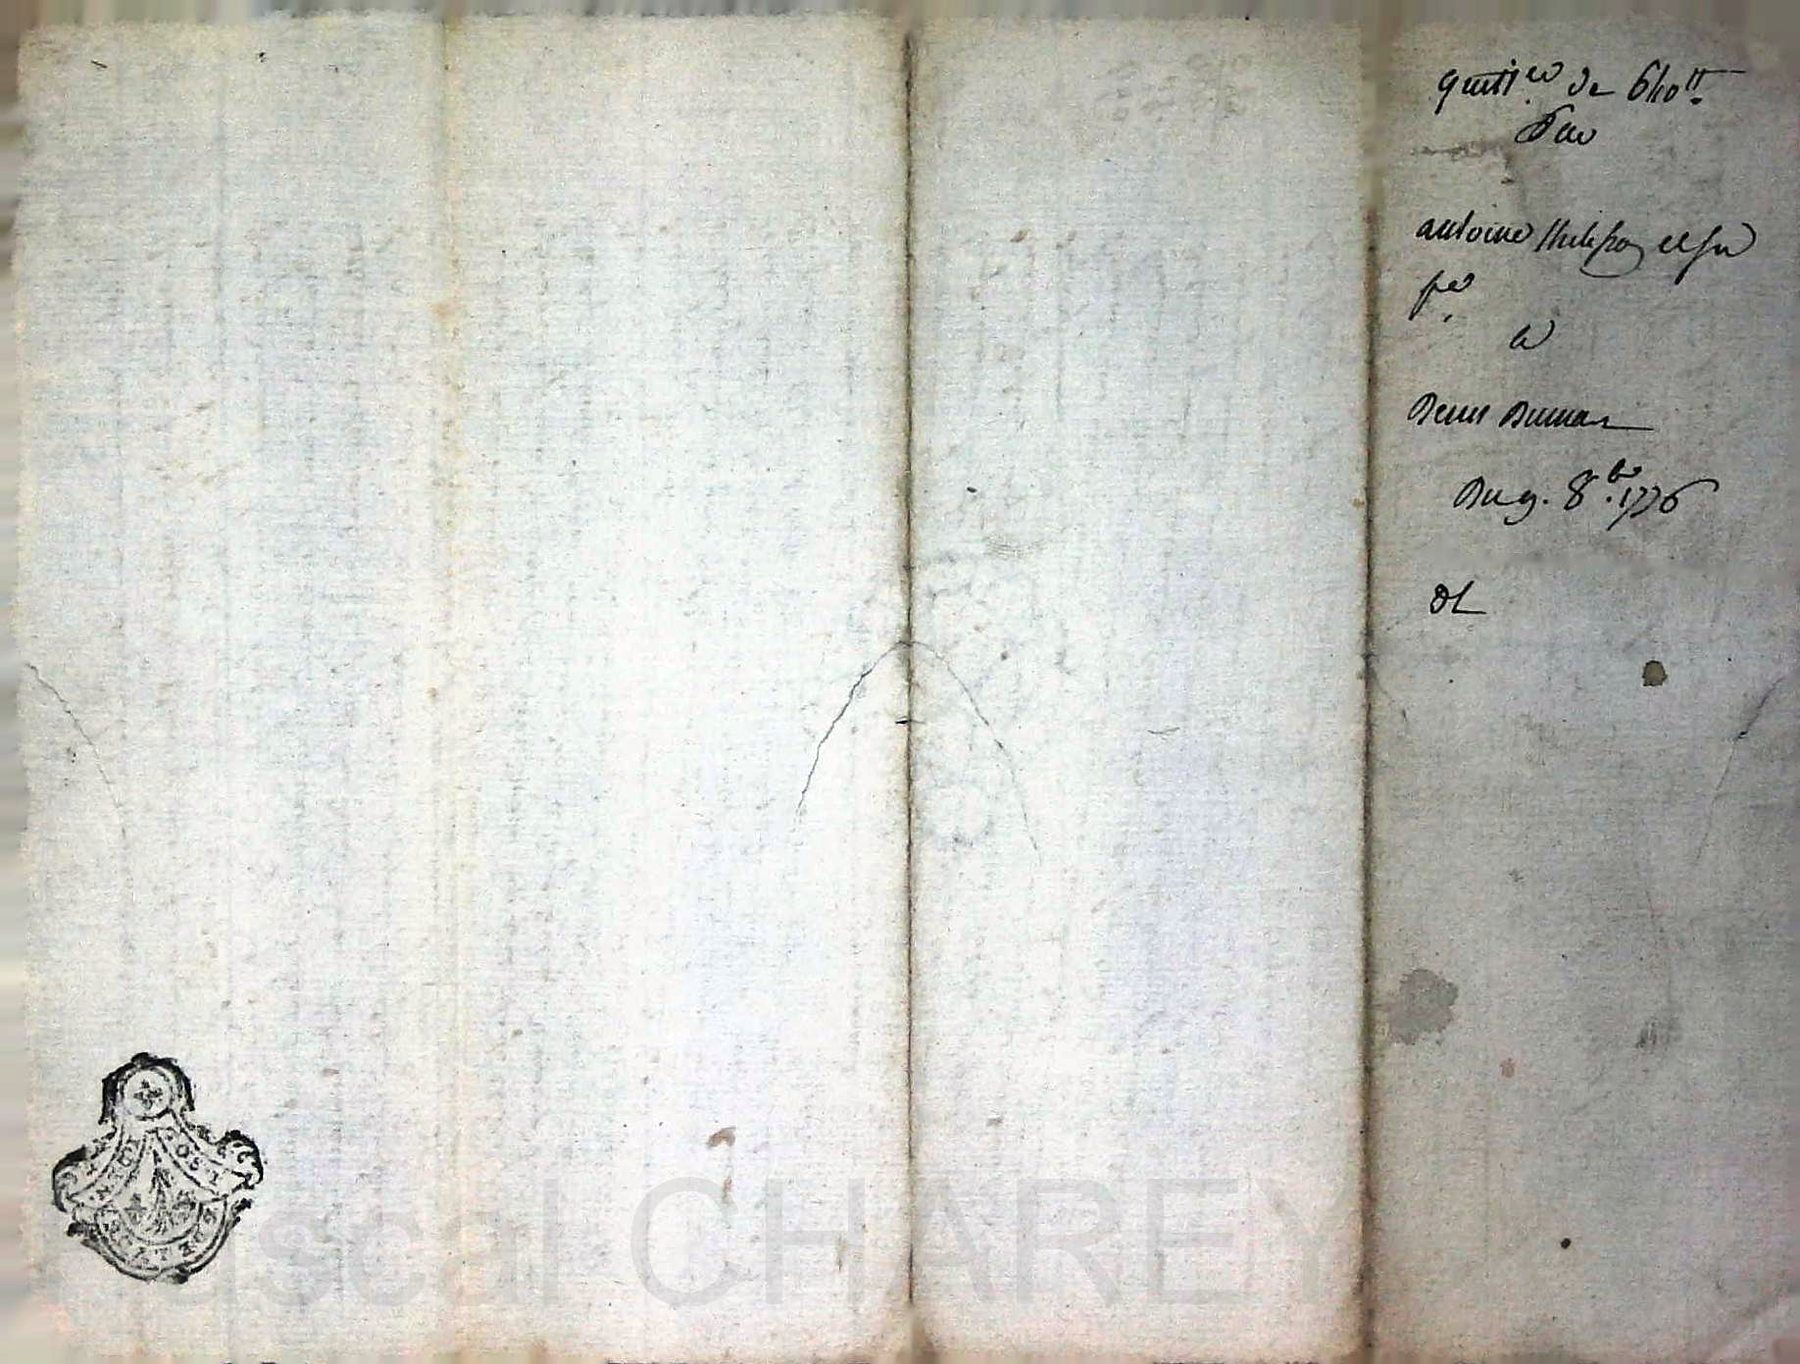 quitt.ce de 640tt
Par
antoine philipon et sa
fe
a
Denis Dumas
Du 9. 8bre 1776
dl
scal CHAREY